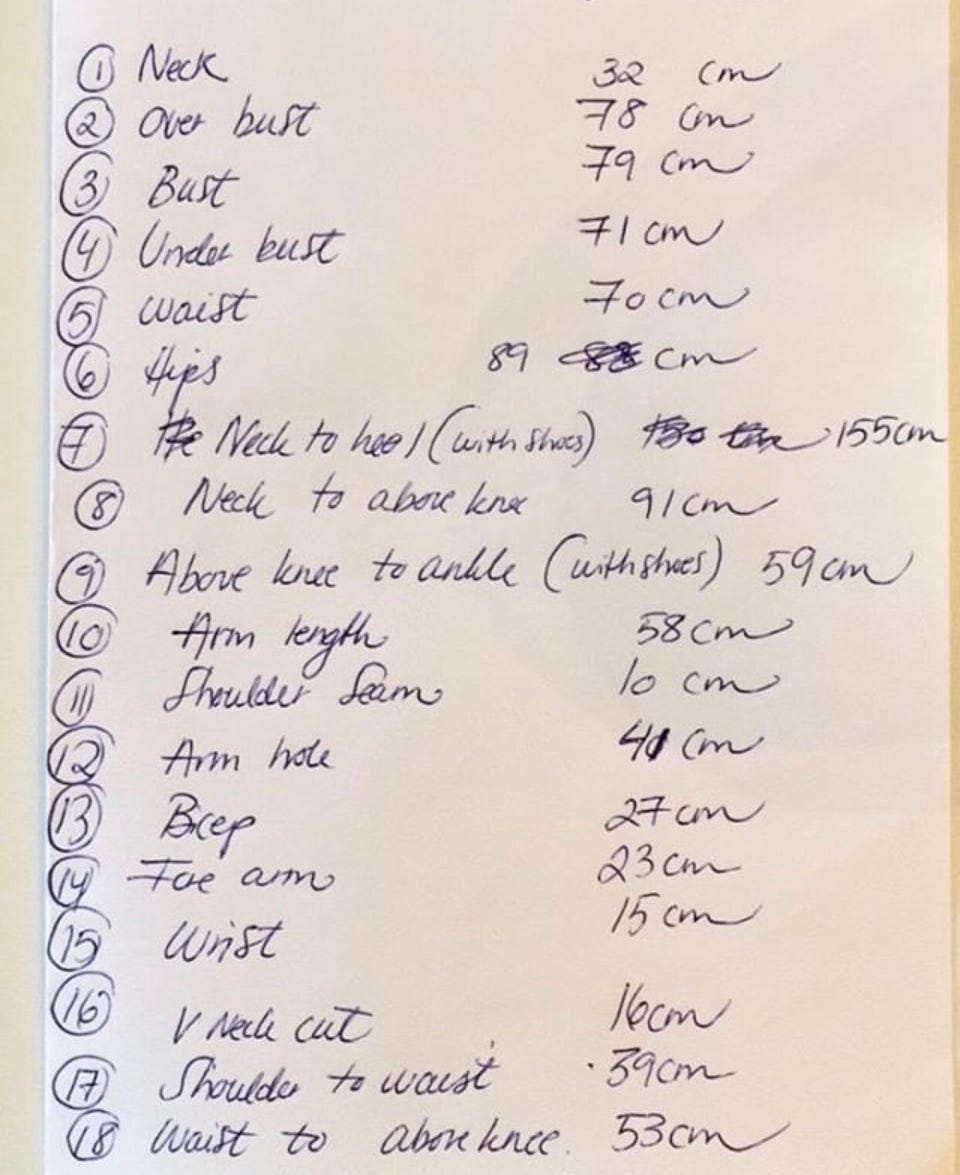 1 Neck 32 cm
2 Over bust 78 cm
3 Bust 79 cm
4 Under bust 71 cm
5 waist 70 cm
6 Hips 89 cm
7 Neck to heel (with shoes) 155cm
8 Neck to above knee 91 cm
9 Above knee to ankle (with shoes) 59 cm
10 Arm length 58 cm
11 Shoulder Seam 10 cm
12 Arm hole 41 cm
13 Bicep 27 cm
14 Foe arm 23 cm
15 Wrist 15 cm
16 V Neck cut 16cm
17 Shoulder to waist 39cm
18 Waist to above knee. 53cm